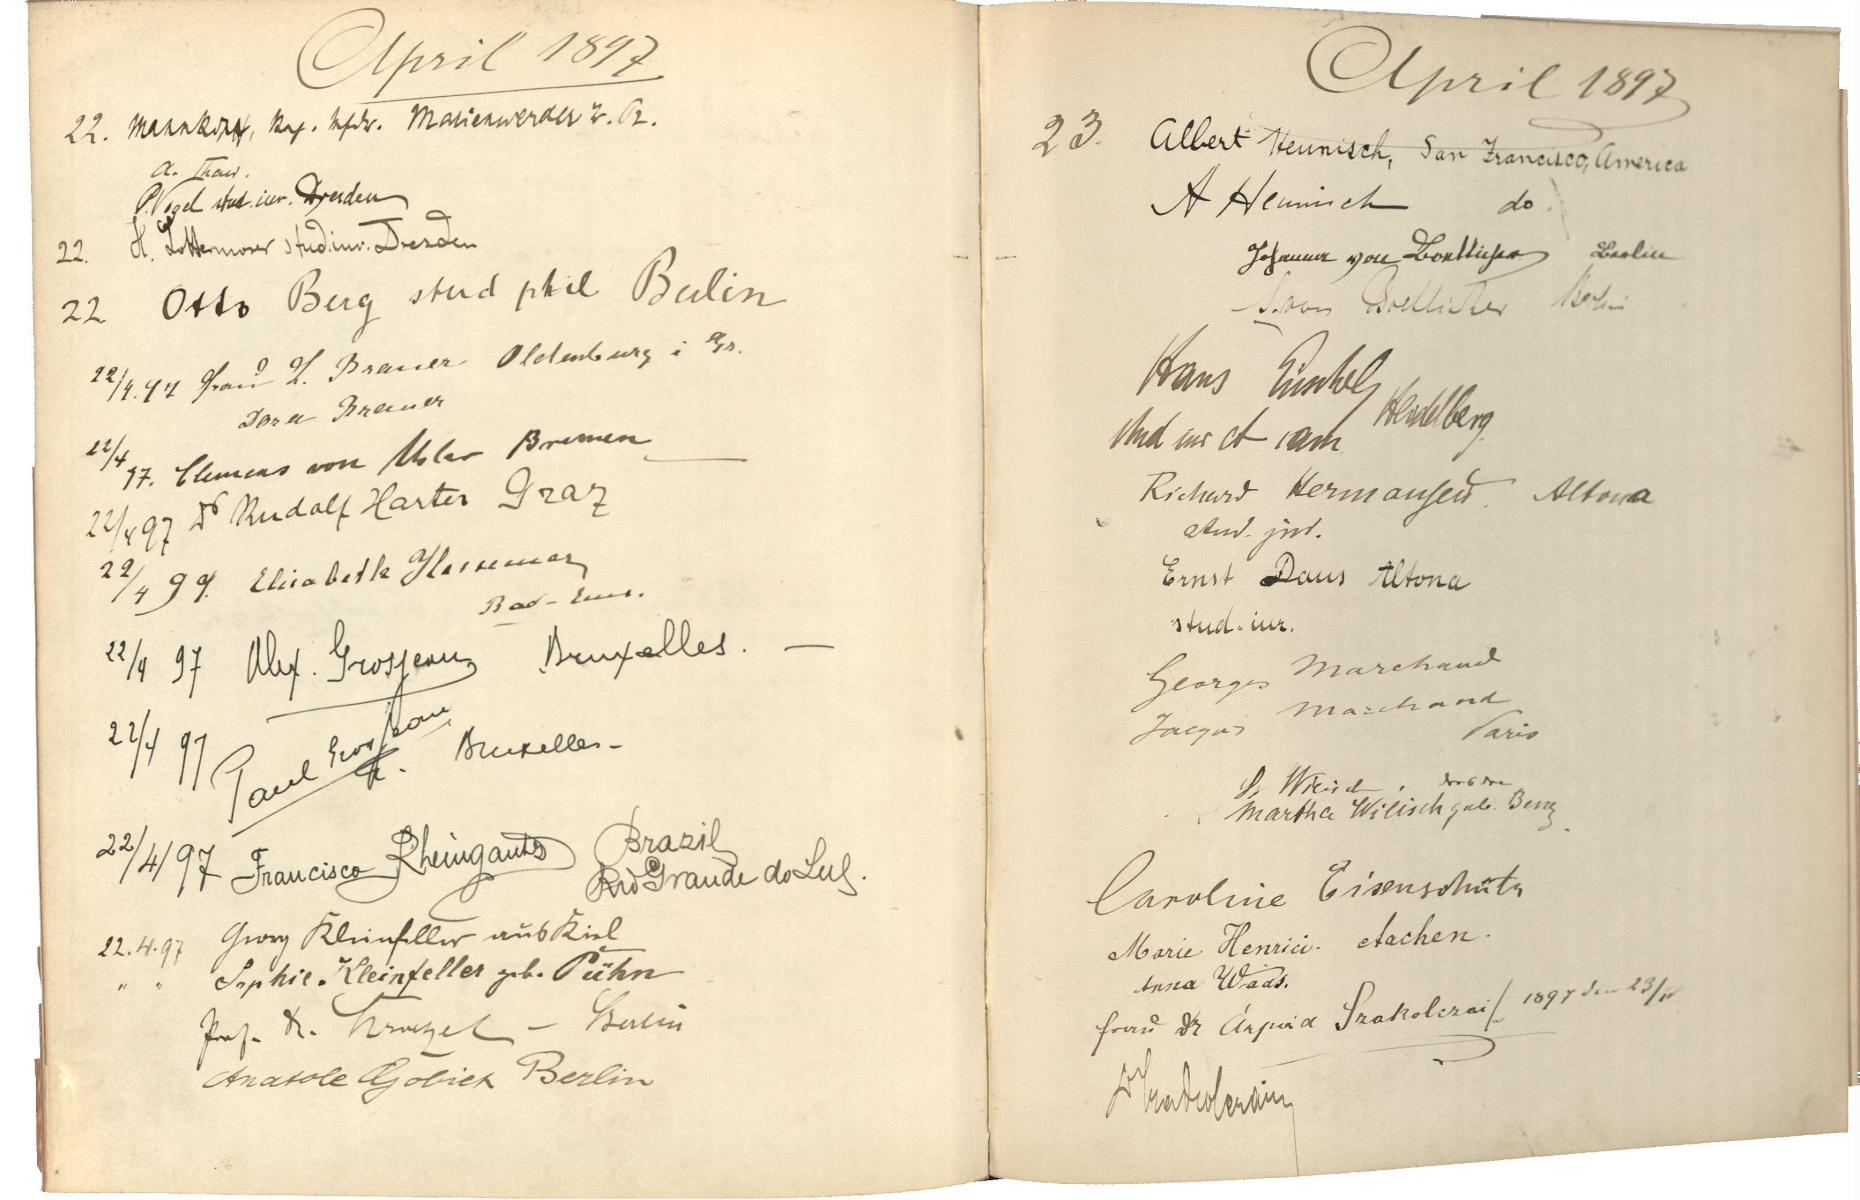 April 1897
22. Marienwerder W. Pr.
A.
P. Vogel stud. iur. Dresden
22. H. Lottermoser stud. iur. Dresden
22 Otto Berg stud phil Berlin
22/4.97 Frau L. Brauer Oldenburg i Gr.
Dora Brauer
22/4 97. Clemens von Uslar Bremen
22/4 97 Dr Rudolf Harter Graz
22/4 97. Elisabeth
Bad-Ems.
22/4 97 Alex. Grosjean Bruxelles.
22/4 97 Paul Grosjean Bruxelles
22/4/97 Francisco Rheingantz Brazil
Rio Grande do Sul.
22.4.97 Georg Kleinfeller aus Kiel
" " Sophie Kleinfeller geb. Pühn
Prof. Dr. Berlin
Anatole Berlin
April 1897
23. Albert Heunisch, San Francisco, America
A Heunisch do
von Boetticher Berlin
von Boetticher Berlin
Hans
Heidelberg
stud iur et cam
Richard Hermansen. Altona
stud. jur.
Ernst Daus Altona
stud. iur.
Georges Marchand
Jacques Marchand
Paris
Martha Wilisch geb. Benz
Caroline Eisenschütz
Marie Henrici. Aachen.
Anna Waas.
Frau Dr Árpád Szakolczai 1897 den 23/IV
Dr Szakolczai